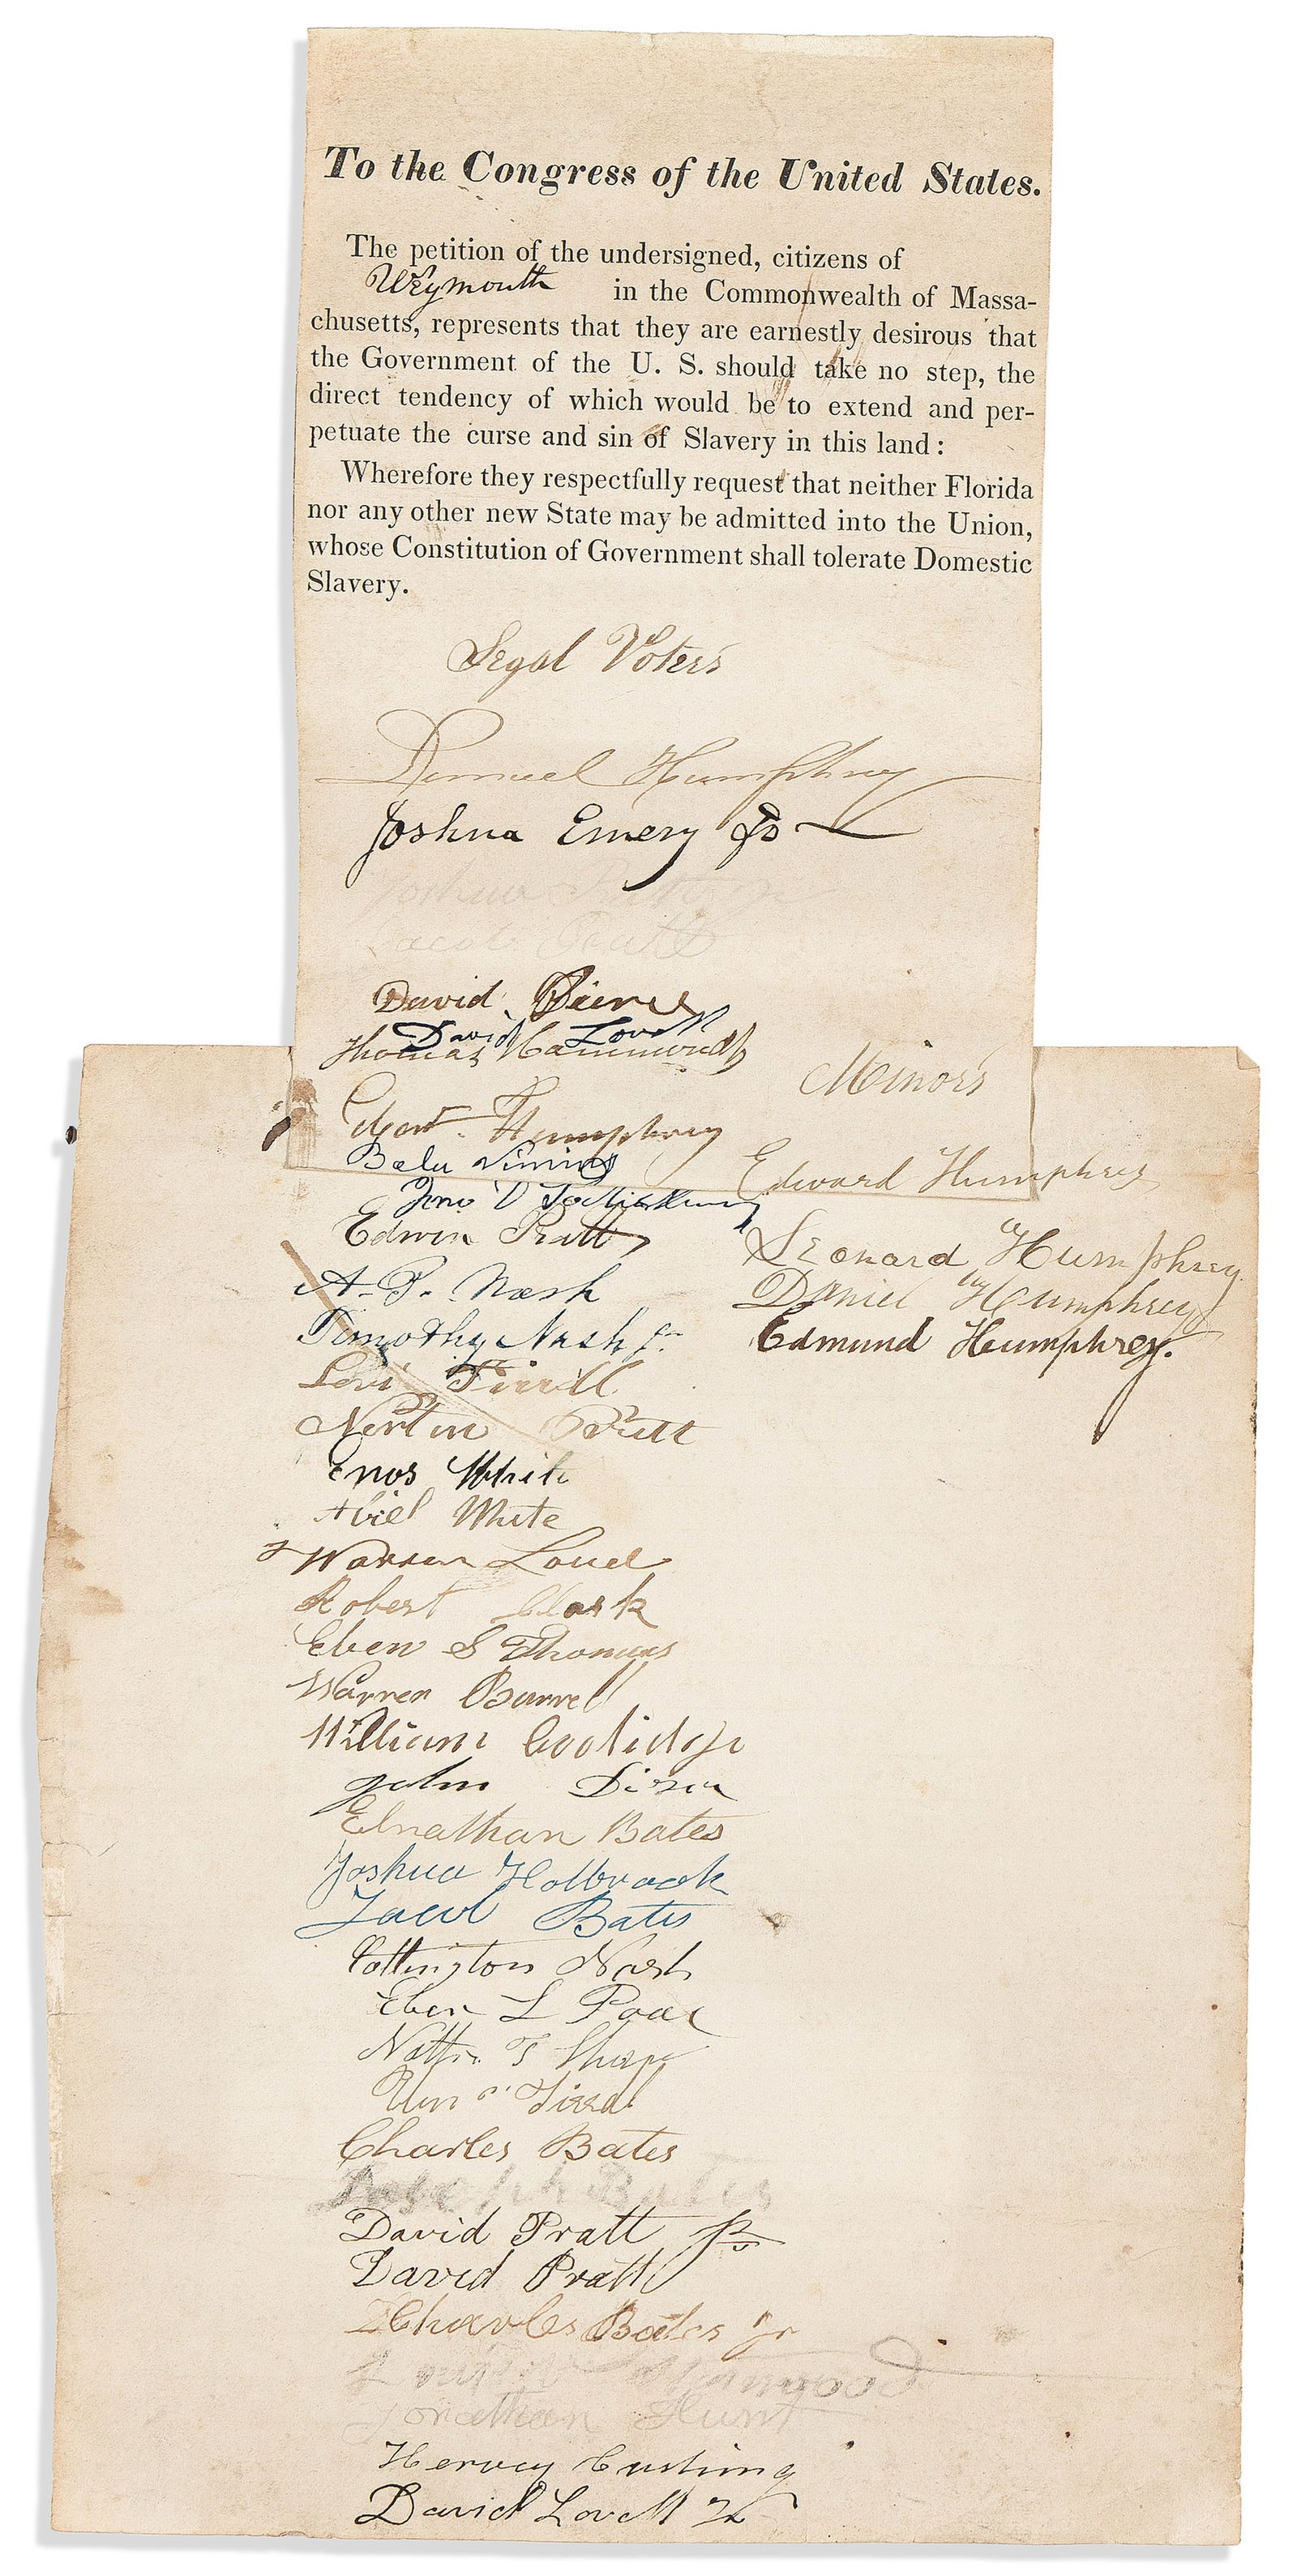 To the Congress of the United States.
The petition of the undersigned, citizens of
Weymouth in the Commonwealth of Massa-
chusetts, represents that they are earnestly desirous that
the Government of the U. S. should take no step, the
direct tendency of which would be to extend and per-
petuate the curse and sin of Slavery in this land:
Wherefore they respectfully request that neither Florida
nor any other new State may be admitted into the Union,
whose Constitution of Government shall tolerate Domestic
Slavery.
Legal Voters
Lemuel Humphrey
Joshua Emery Jr
Joshua Pratt
Jacob Pratt
David Pierce
David Lovell
Thomas Hammond
Humphrey
Bela
Edwin Pratt
A. P. Nash
Timothy Nash Jr.
Levi Tirrill
Norton Pratt
Enos White
Abiel White
Warren Loud
Robert Clark
Eben S Thomas
Warren Burrell
William Coolidge
John Dizer
Elnathan Bates
Joshua Holbrook
Jacob Bates
Cottington Nash
Eben L
T Sharp
Wm Tirral
Charles Bates
Joseph Bates
David Pratt Jr
David Pratt
Charles Bates Jr
Jonathan Hunt
Hervey Cushing
David Lovell Jr
Minors
Edward Humphrey
Leonard Humphrey
Daniel Humphrey
Edmund Humphrey.